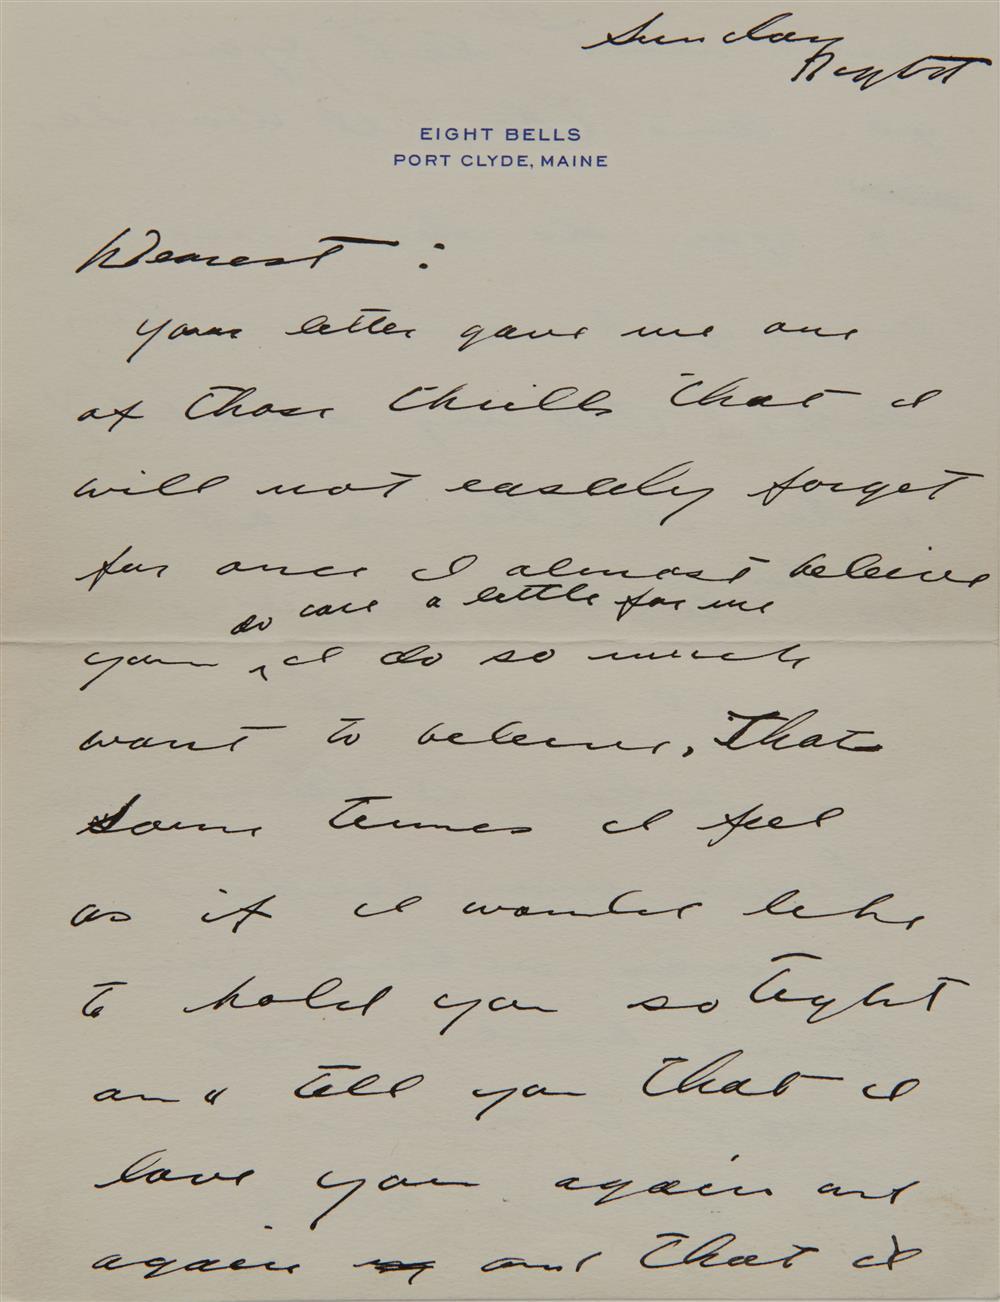 Sunday
Night
EIGHT BELLS
PORT CLYDE, MAINE
Dearest :
your letter gave me one
of those thrills that I
will not easlely forget
for once I almost beleive
do care a little for me
you ^ I do so much
want to beleive, That
Some times I feel
as if I would like
to hold you so tight
and tell you that I
love you again and
again and that I